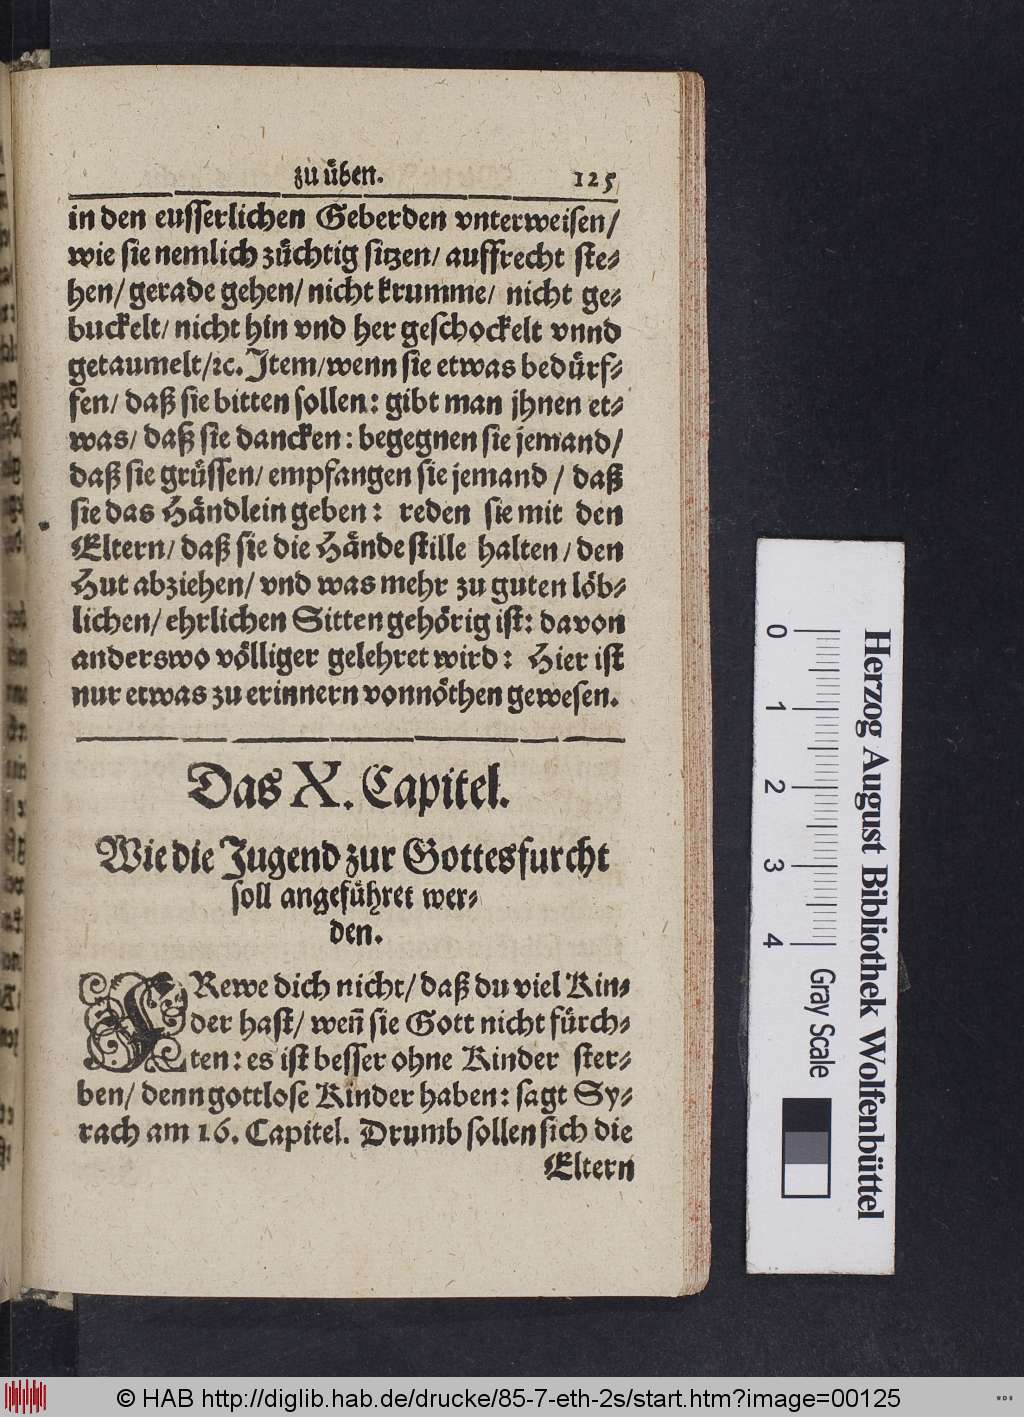 zu üben. 125
in den eusserlichen Geberden vnterweisen/
wie sie nemlich züchtig sitzen/ auffrecht ste-
hen/ gerade gehen/ nicht krumme/ nicht ge-
buckelt/ nicht hin vnd her geschockelt vnnd
getaumelt/ ꝛc. Item/ wenn sie etwas bedürf-
fen/ daß sie bitten sollen: gibt man jhnen et-
was/ daß sie dancken: begegnen sie jemand/
daß sie grüssen/ empfangen sie jemand/ daß
sie das Händlein geben: reden sie mit den
Eltern/ daß sie die Hände stille halten/ den
Hut abziehen/ vnd was mehr zu guten löb-
lichen/ ehrlichen Sitten gehörig ist: davon
anderswo völliger gelehret wird: Hier ist
nur etwas zu erinnern vonnöthen gewesen.
Das X. Capitel.
Wie die Jugend zur Gottesfurcht
soll angeführet wer-
den.
FRewe dich nicht/ daß du viel Kin-
der hast/ weñ sie Gott nicht fürch-
ten: es ist besser ohne Kinder ster-
ben/ denn gottlose Kinder haben: sagt Sy-
rach am 16. Capitel. Drumb sollen sich die
Eltern
0 1 2 3 4
Gray Scale
Herzog August Bibliothek Wolfenbüttel
© HAB http://diglib.hab.de/drucke/85-7-eth-2s/start.htm?image=00125